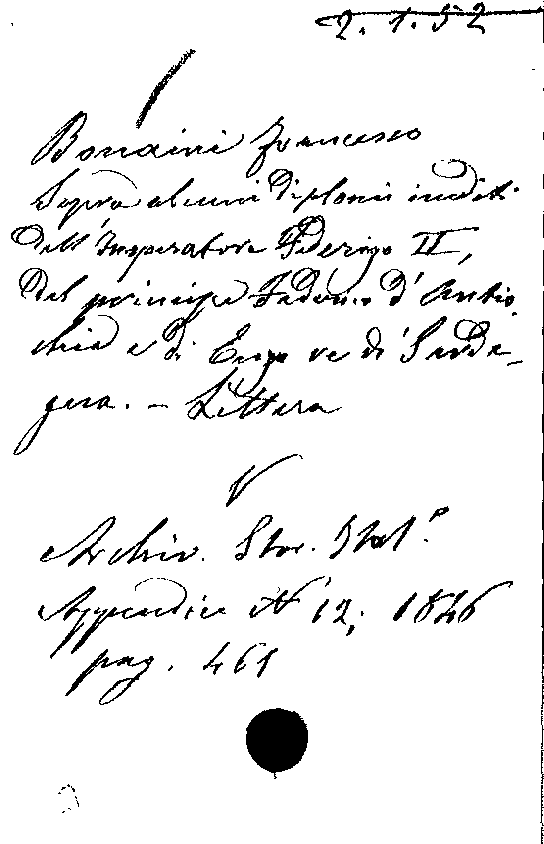 2. 1. 52
Bonaini Francesco
Sopra alcuni diplomi inediti
dell'Imperatore Federigo II,
del principe Federico d'Antio
chia e di Enzo re di Sarde-
gna. - Lettera
V
Archiv. Stor. Ital.º
Appendice Nº 12; 1846
pag. 461